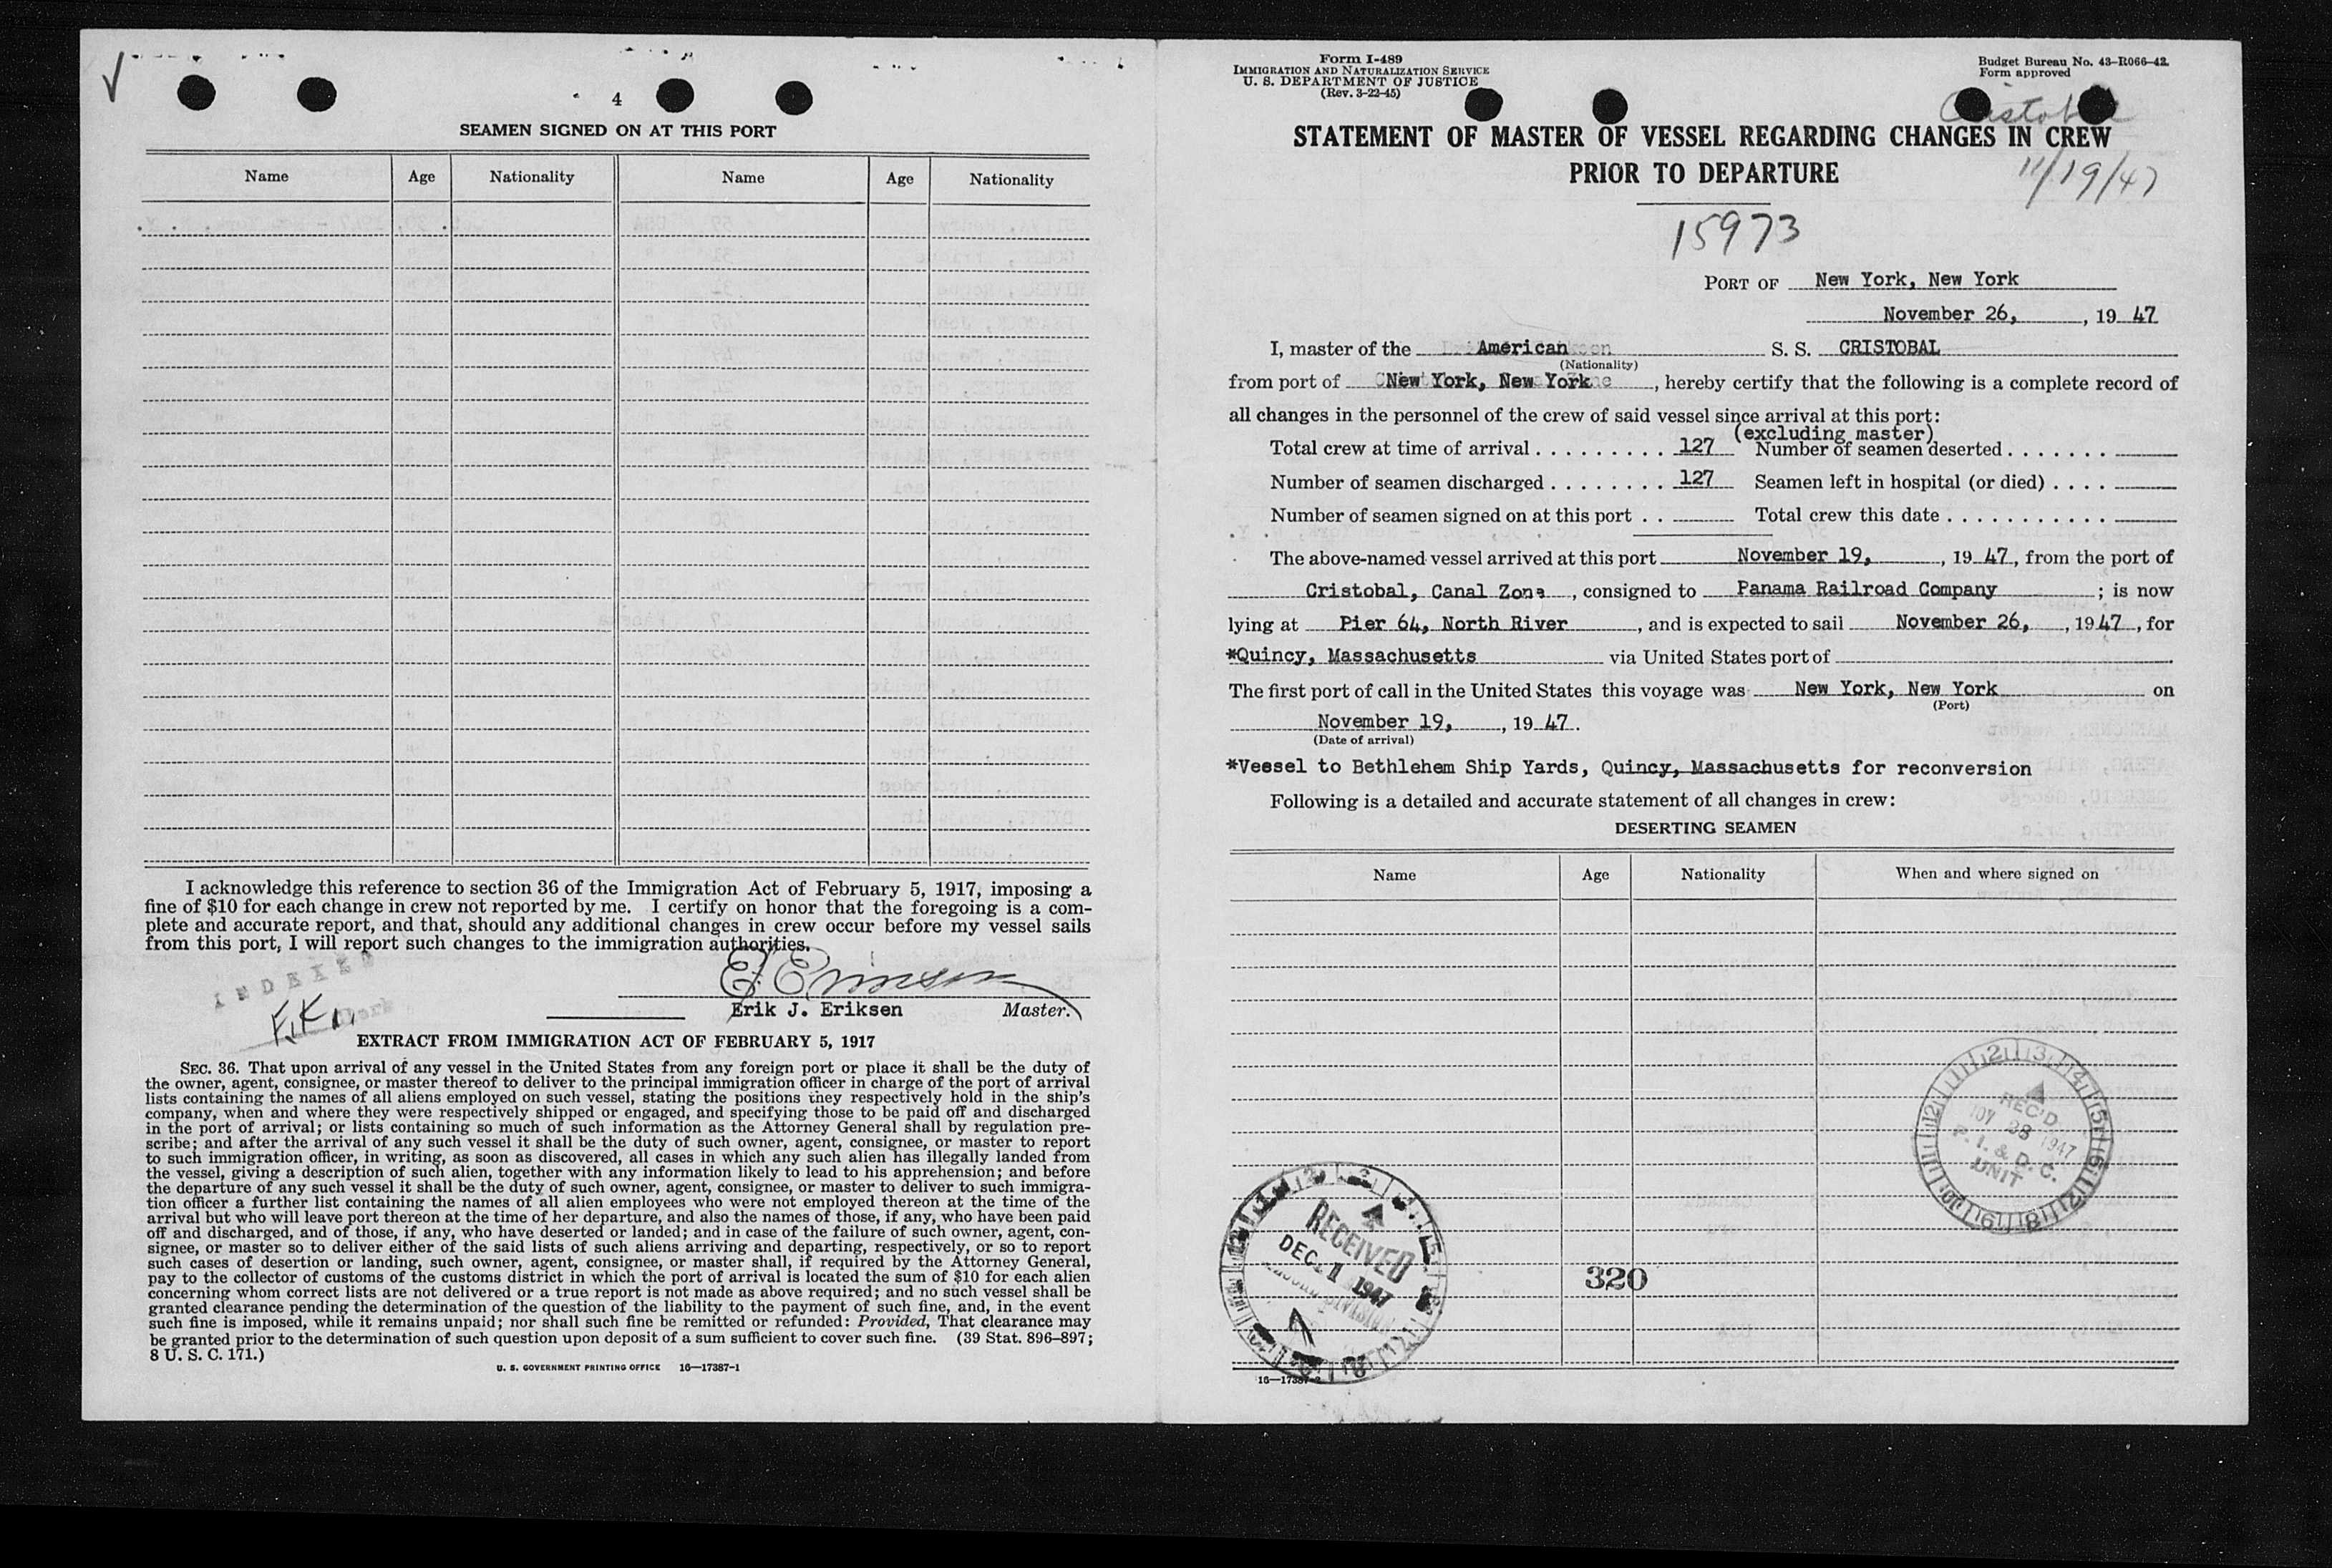 4
SEAMEN SIGNED ON AT THIS PORT
Name Age Nationality Name Age Nationality
I acknowledge this reference to section 36 of the Immigration Act of February 5, 1917, imposing a
fine of $10 for each change in crew not reported by me. I certify on honor that the foregoing is a com-
plete and accurate report, and that, should any additional changes in crew occur before my vessel sails
from this port, I will report such changes to the immigration authorities.
INDEXED
E. J. Eriksen
F.K.
Clerk
Erik J. Eriksen Master.
EXTRACT FROM IMMIGRATION ACT OF FEBRUARY 5, 1917
SEC. 36. That upon arrival of any vessel in the United States from any foreign port or place it shall be the duty of
the owner, agent, consignee, or master thereof to deliver to the principal immigration officer in charge of the port of arrival
lists containing the names of all aliens employed on such vessel, stating the positions they respectively hold in the ship's
company, when and where they were respectively shipped or engaged, and specifying those to be paid off and discharged
in the port of arrival; or lists containing so much of such information as the Attorney General shall by regulation pre-
scribe; and after the arrival of any such vessel it shall be the duty of such owner, agent, consignee, or master to report
to such immigration officer, in writing, as soon as discovered, all cases in which any such alien has illegally landed from
the vessel, giving a description of such alien, together with any information likely to lead to his apprehension; and before
the departure of any such vessel it shall be the duty of such owner, agent, consignee, or master to deliver to such immigra-
tion officer a further list containing the names of all alien employees who were not employed thereon at the time of the
arrival but who will leave port thereon at the time of her departure, and also the names of those, if any, who have been paid
off and discharged, and of those, if any, who have deserted or landed; and in case of the failure of such owner, agent, con-
signee, or master so to deliver either of the said lists of such aliens arriving and departing, respectively, or so to report
such cases of desertion or landing, such owner, agent, consignee, or master shall, if required by the Attorney General,
pay to the collector of customs of the customs district in which the port of arrival is located the sum of $10 for each alien
concerning whom correct lists are not delivered or a true report is not made as above required; and no such vessel shall be
granted clearance pending the determination of the question of the liability to the payment of such fine, and, in the event
such fine is imposed, while it remains unpaid; nor shall such fine be remitted or refunded: Provided, That clearance may
be granted prior to the determination of such question upon deposit of a sum sufficient to cover such fine. (39 Stat. 896–897;
8 U. S. C. 171.)
U. S. GOVERNMENT PRINTING OFFICE 16—17387-1
Form I-489
IMMIGRATION AND NATURALIZATION SERVICE
U. S. DEPARTMENT OF JUSTICE
(Rev. 3-22-45)
Budget Bureau No. 43-R066-42.
Form approved
Cristobal
STATEMENT OF MASTER OF VESSEL REGARDING CHANGES IN CREW
PRIOR TO DEPARTURE
11/19/47
15973
PORT OF New York, New York
November 26, , 19 47
I, master of the American S. S. CRISTOBAL
(Nationality)
from port of New York, New York , hereby certify that the following is a complete record of
all changes in the personnel of the crew of said vessel since arrival at this port:
(excluding master)
Total crew at time of arrival . . . . . . . . . 127 Number of seamen deserted . . . . . . .
Number of seamen discharged . . . . . . . . 127 Seamen left in hospital (or died) . . . .
Number of seamen signed on at this port . . Total crew this date . . . . . . . . . . . .
The above-named vessel arrived at this port November 19, , 19 47, from the port of
Cristobal, Canal Zone , consigned to Panama Railroad Company ; is now
lying at Pier 64, North River , and is expected to sail November 26, , 19 47 , for
*Quincy, Massachusetts via United States port of
The first port of call in the United States this voyage was New York, New York on
(Port)
November 19, , 19 47.
(Date of arrival)
*Vessel to Bethlehem Ship Yards, Quincy, Massachusetts for reconversion
Following is a detailed and accurate statement of all changes in crew:
DESERTING SEAMEN
Name Age Nationality When and where signed on
REC'D.
NOV 28 1947
P. I. & D. C.
UNIT
RECEIVED
DEC 1 1947
320
16—17387-2